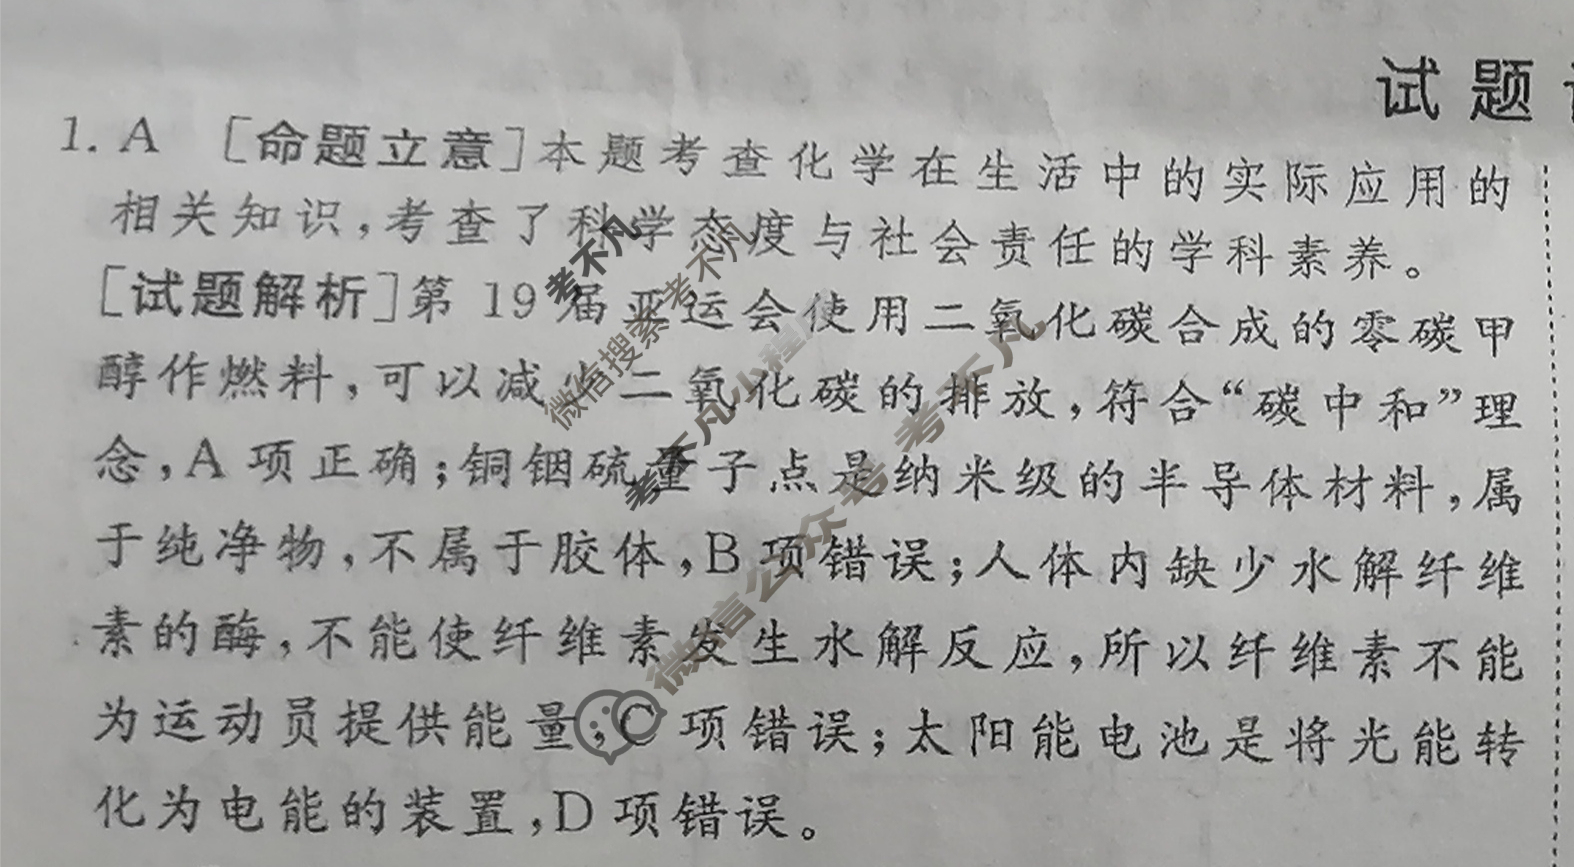 试题
1. A [命题立意]本题考查化学在生活中的实际应用的
相关知识,考查了科学态度与社会责任的学科素养。
[试题解析]第 19 届亚运会使用二氧化碳合成的零碳甲
醇作燃料,可以减少二氧化碳的排放,符合“碳中和”理
念,A 项正确;铜铟硫量子点是纳米级的半导体材料,属
于纯净物,不属于胶体,B 项错误;人体内缺少水解纤维
素的酶,不能使纤维素发生水解反应,所以纤维素不能
为运动员提供能量,C 项错误;太阳能电池是将光能转
化为电能的装置,D 项错误。
考不凡
微信搜索 考不凡
考不凡小程序
微信公众号 考不凡